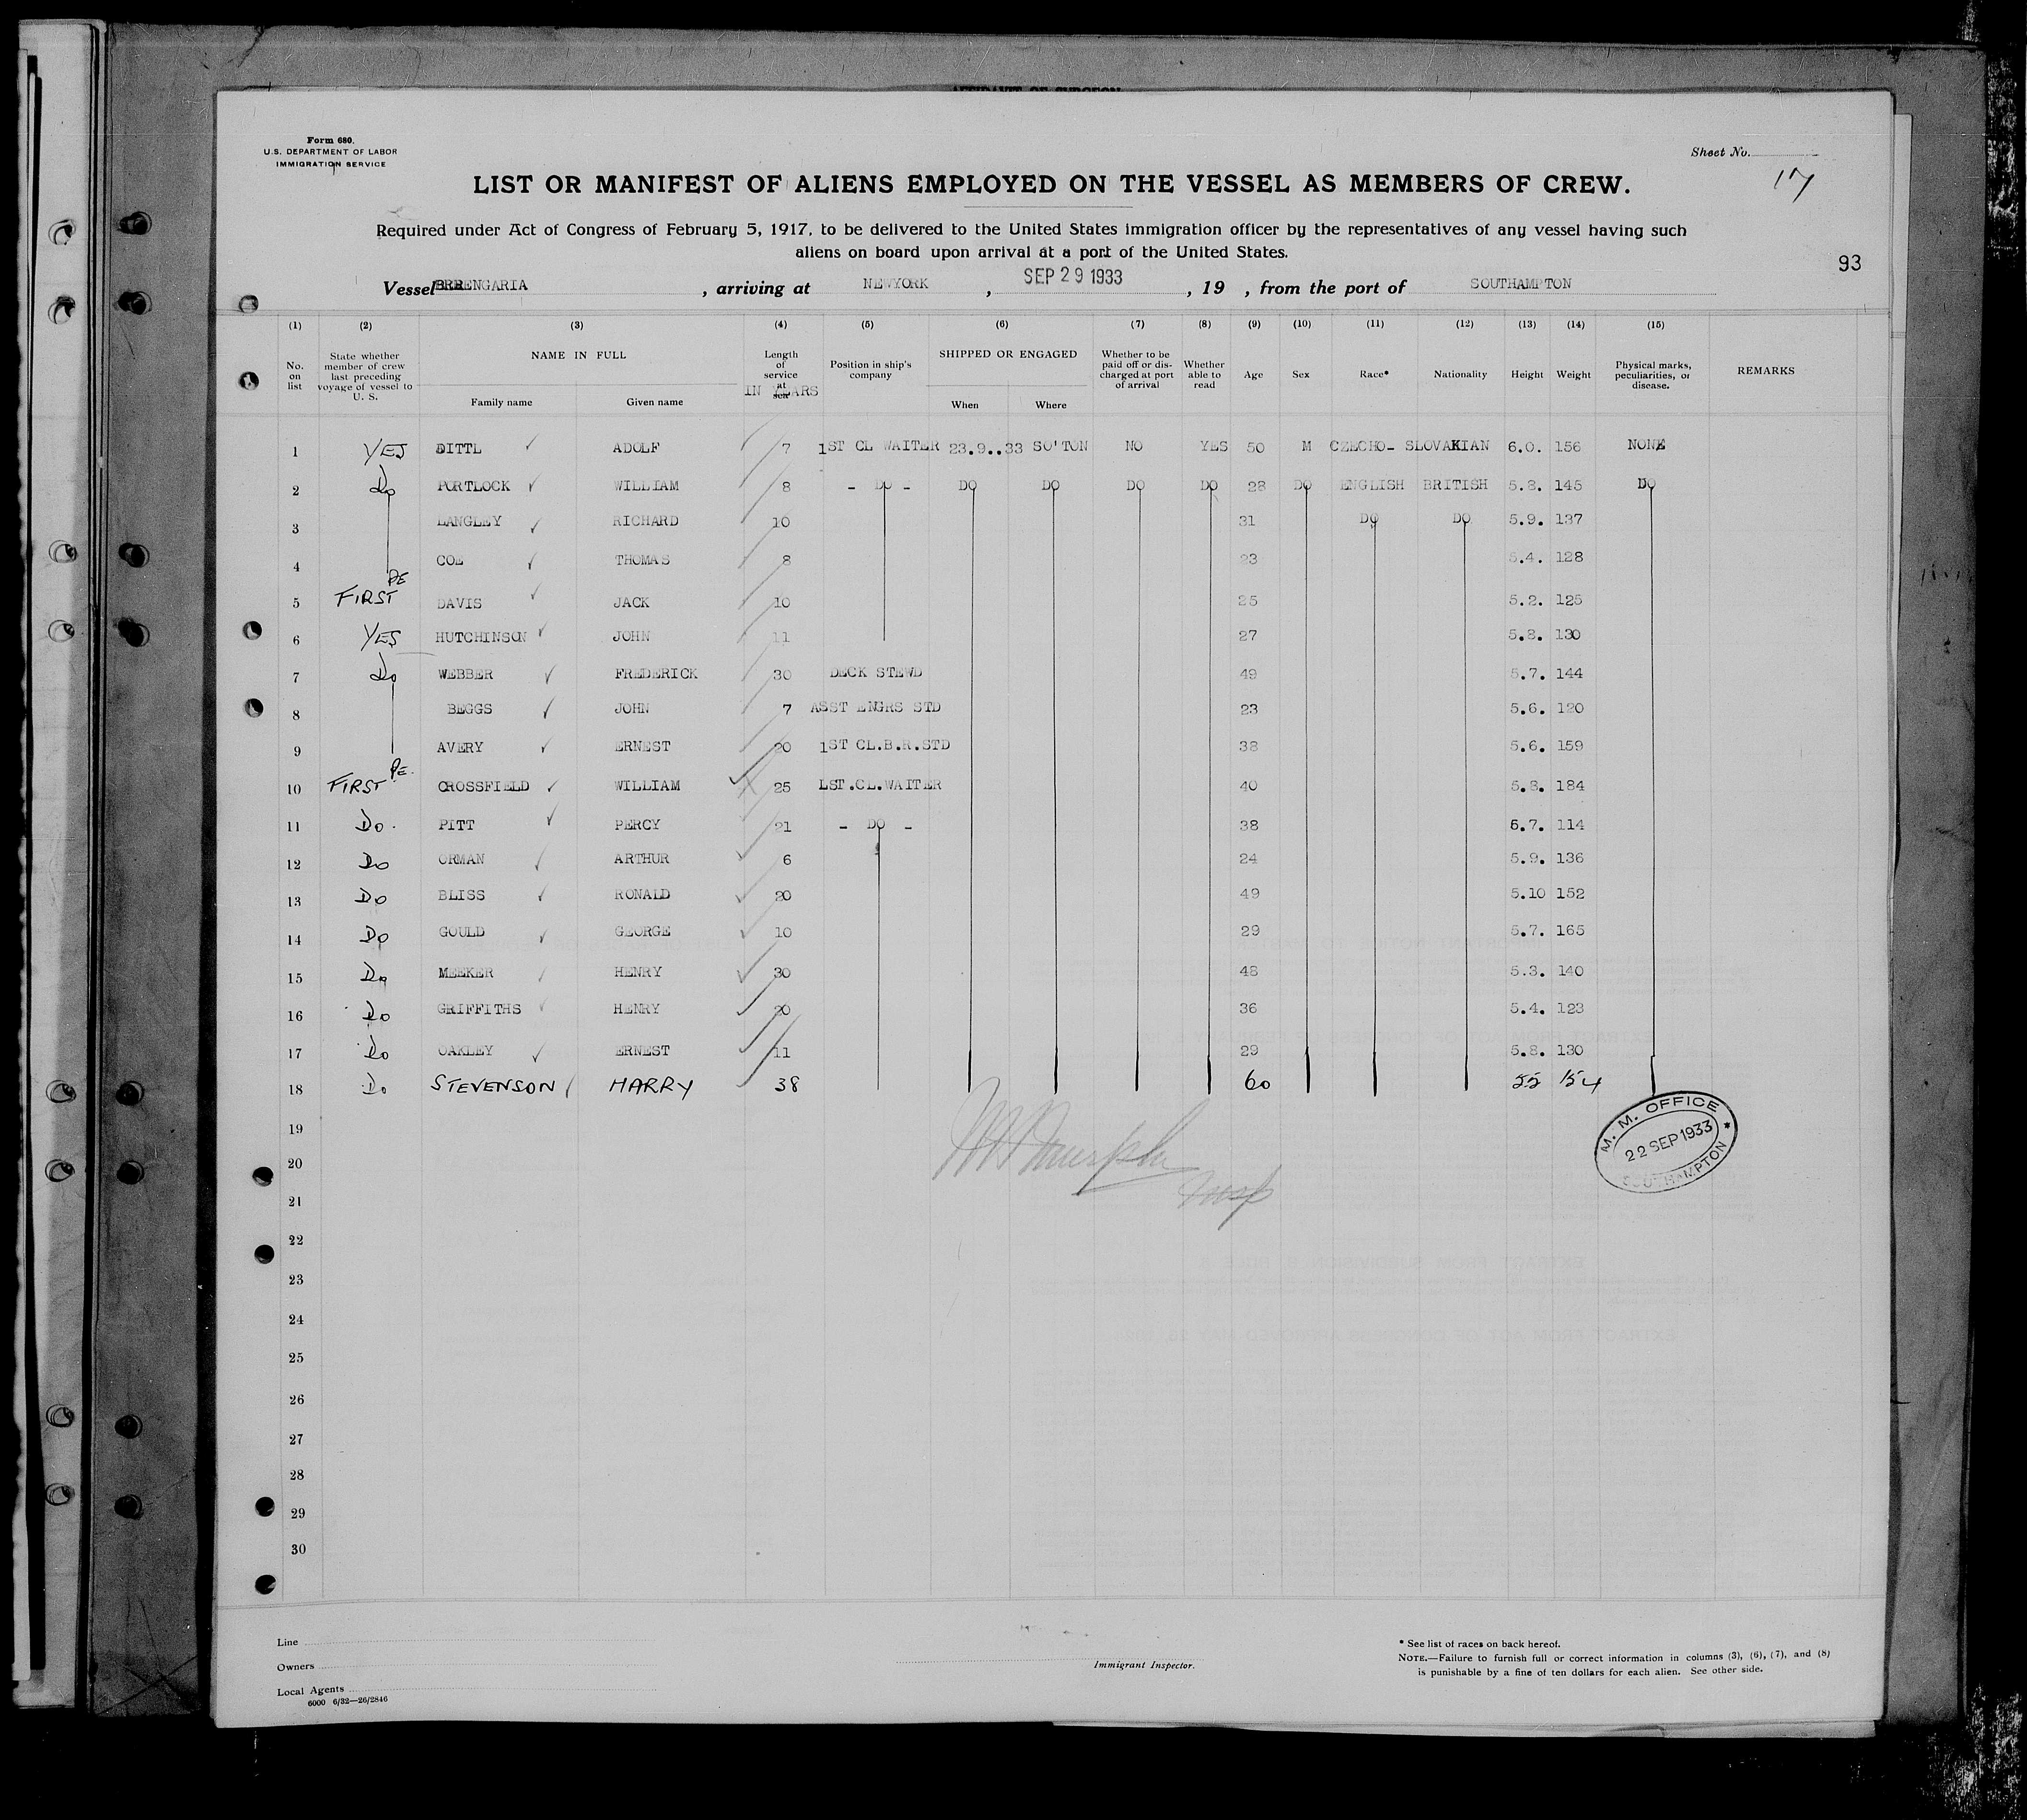 AFFIDAVIT OF SURGEON
Form 680.
U.S. DEPARTMENT OF LABOR
IMMIGRATION SERVICE
Sheet No.
17
LIST OR MANIFEST OF ALIENS EMPLOYED ON THE VESSEL AS MEMBERS OF CREW.
Required under Act of Congress of February 5, 1917, to be delivered to the United States immigration officer by the representatives of any vessel having such
aliens on board upon arrival at a port of the United States.
93
Vessel BERENGARIA, arriving at NEWYORK, SEP 29 1933, 19 , from the port of SOUTHAMPTON
(1) (2) (3) (4) (5) (6) (7) (8) (9) (10) (11) (12) (13) (14) (15)
No. on list State whether member of crew last preceding voyage of vessel to U. S. NAME IN FULL Family name Given name Length of service at sea IN YEARS Position in ship's company SHIPPED OR ENGAGED When Where Whether to be paid off or discharged at port of arrival Whether able to read Age Sex Race* Nationality Height Weight Physical marks, peculiarities, or disease. REMARKS
1 YES DITTL ADOLF 7 1ST CL WAITER 23.9..33 SO'TON NO YES 50 M CZECHO- SLOVAKIAN 6.0. 156 NONE
2 Do PORTLOCK WILLIAM 8 - DO - DO DO DO DO 28 DO ENGLISH BRITISH 5.8. 145 DO
3 LANGLEY RICHARD 10 31 DO DO 5.9. 137
4 COE THOMAS 8 23 5.4. 128
5 FIRST PE DAVIS JACK 10 25 5.2. 125
6 YES HUTCHINSON JOHN 11 27 5.8. 130
7 Do WEBBER FREDERICK 30 DECK STEWD 49 5.7. 144
8 BEGGS JOHN 7 ASST ENGRS STD 23 5.6. 120
9 AVERY ERNEST 20 1ST CL.B.R.STD 38 5.6. 159
10 FIRST PE. CROSSFIELD WILLIAM 25 LST.CL.WAITER 40 5.8. 184
11 Do. PITT PERCY 21 - DO - 38 5.7. 114
12 Do ORMAN ARTHUR 6 24 5.9. 136
13 Do BLISS RONALD 20 49 5.10 152
14 Do GOULD GEORGE 10 29 5.7. 165
15 Do MEEKER HENRY 30 48 5.3. 140
16 Do GRIFFITHS HENRY 20 36 5.4. 123
17 Do OAKLEY ERNEST 11 29 5.8. 130
18 Do STEVENSON HARRY 38 60 55 154
19
20
21
22
23
24
25
26
27
28
29
30
M. M. OFFICE
22 SEP 1933
SOUTHAMPTON
Insp
Line
Owners
Local Agents
6000 6/32—26/2846
Immigrant Inspector.
* See list of races on back hereof.
NOTE.—Failure to furnish full or correct information in columns (3), (6), (7), and (8)
is punishable by a fine of ten dollars for each alien. See other side.